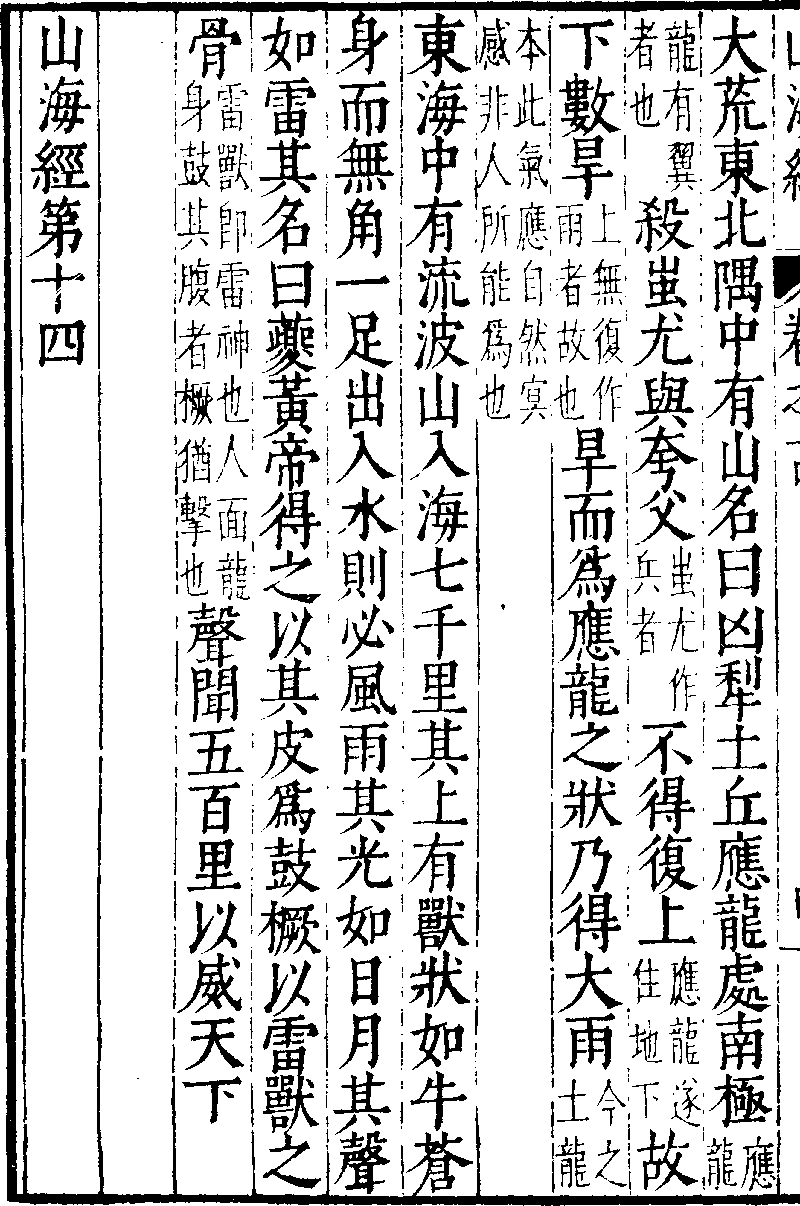 大荒東北隅中有山名曰凶犁土丘應龍處南極應龍
龍有翼者也殺蚩尤與夸父蚩尤作兵者不得復上應龍遂住地下故
下數旱上無復作雨者故也旱而爲應龍之狀乃得大雨今之土龍
本此氣應自然冥感非人所能爲也
東海中有流波山入海七千里其上有獸狀如牛蒼
身而無角一足出入水則必風雨其光如日月其聲
如雷其名曰夔黃帝得之以其皮爲鼓橛以雷獸之
骨雷獸卽雷神也人面龍身鼓其腹者橛猶擊也聲聞五百里以威天下
山海經第十四